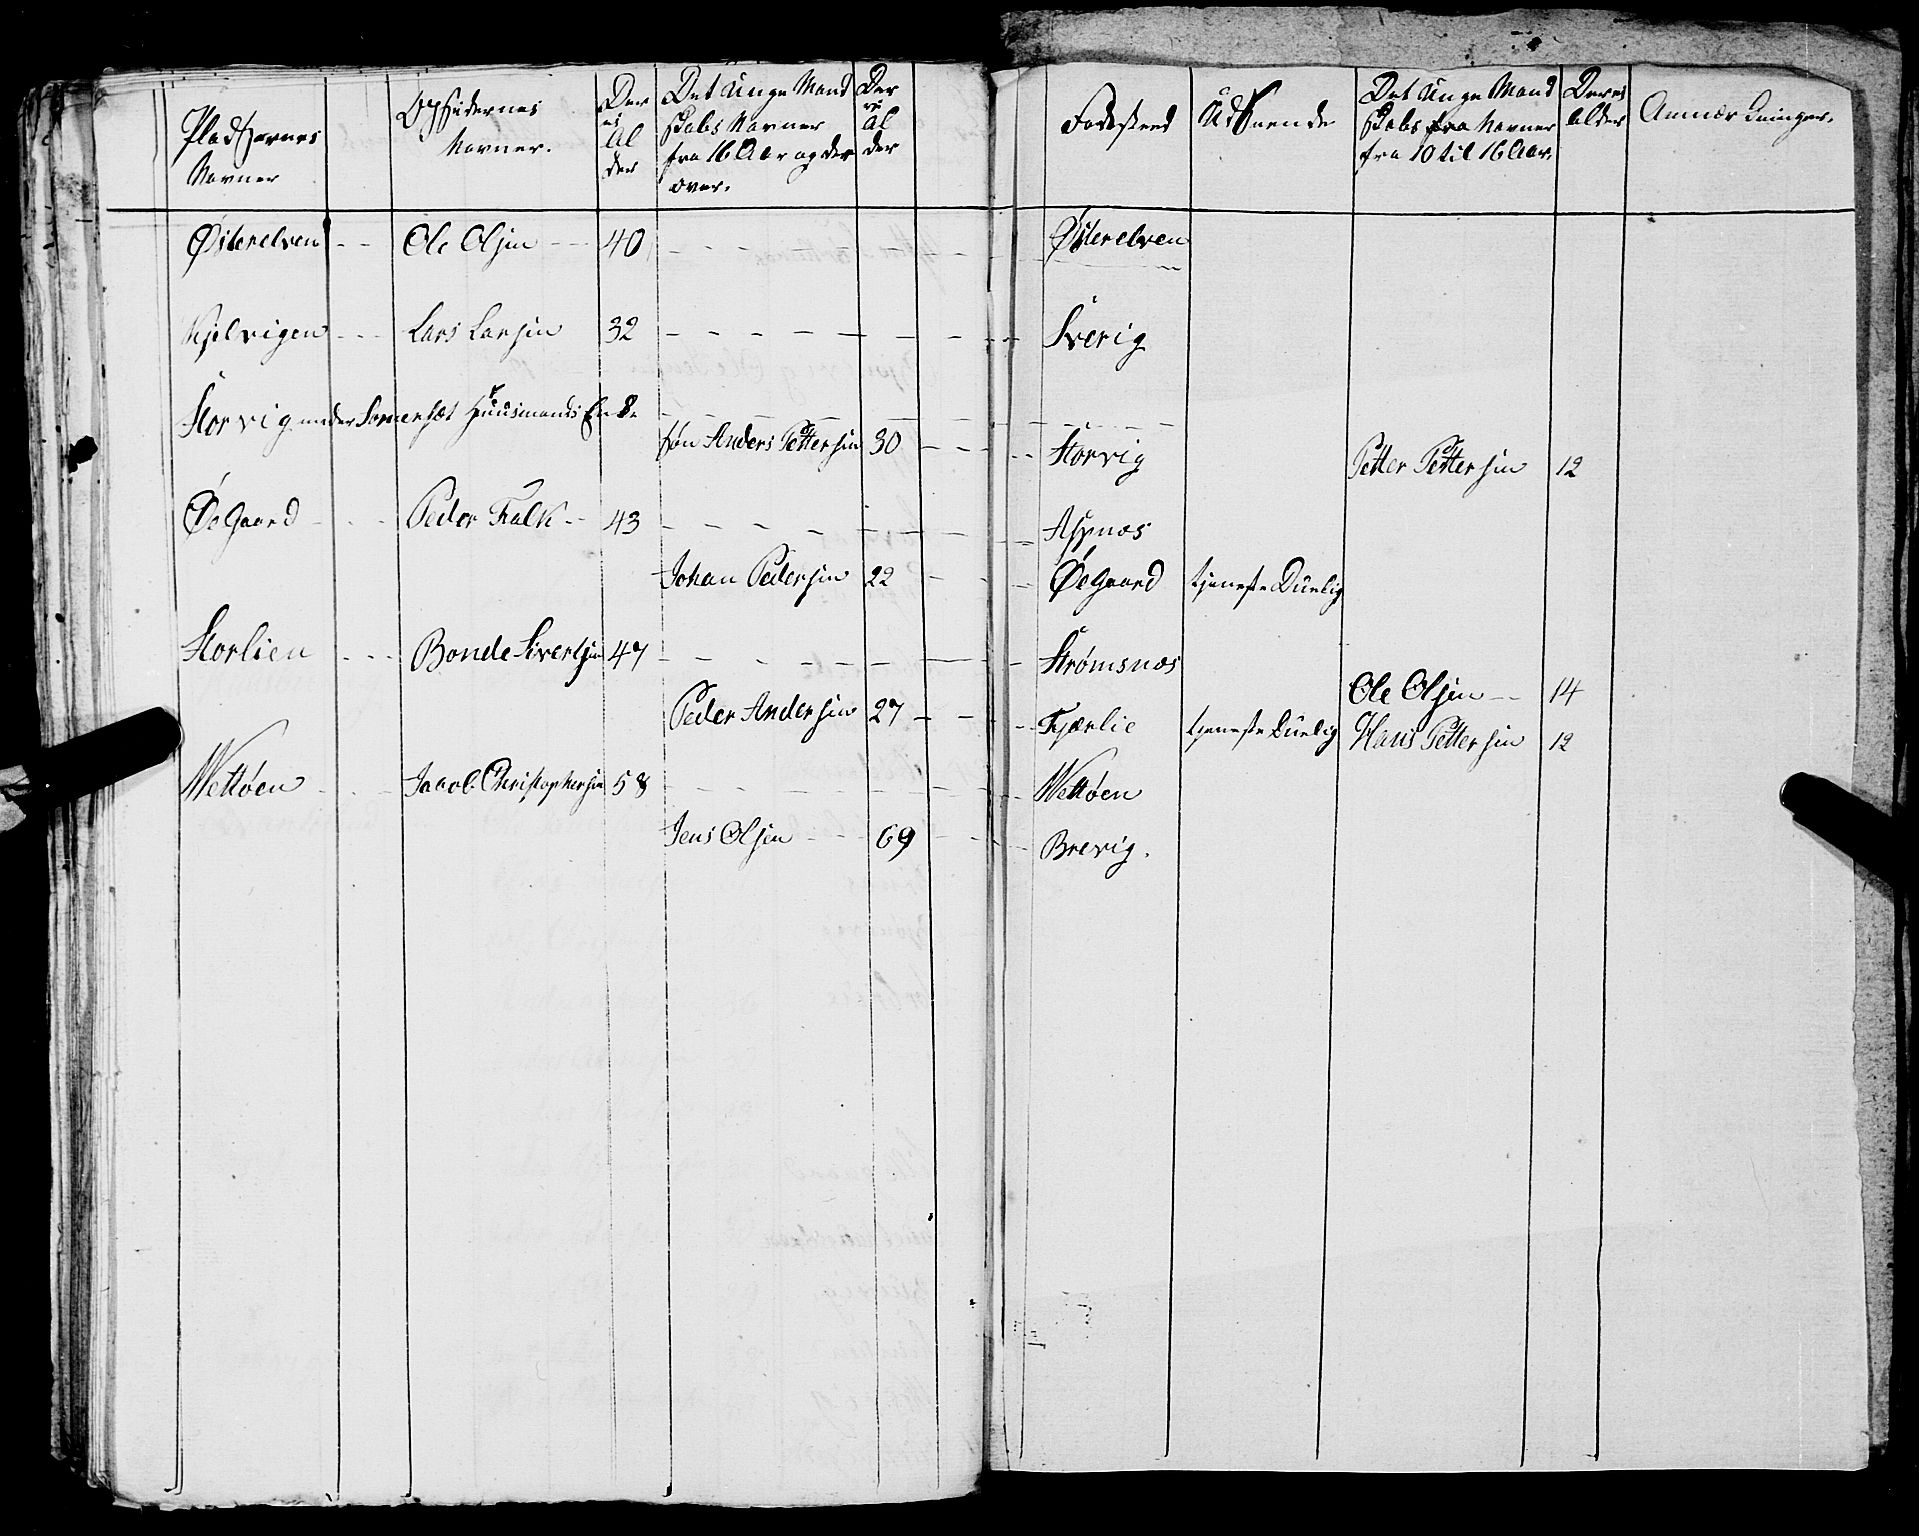 Pladsernes Navner
Opsidernes Navner.
Der es Al der
Det Unge Mand skabs Navner fra 16 Aar og der over.
Der es Al der
Fødesteed
Udseende
Det Unge Mand skabs fra Navner fra 10 til 16 Aar.
Deres Alder
Anmærkninger.
Østerelven - - Ole Olsen - - 40 - - - Østerelven
Kjelvigen - - - Lars Larsen 32 - - - Sverig
Storvig under Sornersæt Huusmands Enke - - -
søn Anders Pettersen 30 - - - Storvig Petter Pettersen 12
ØeGaard - - - Peder Falk - - 43 - - - Aspnæs
Johan Pedersen 22 - - ØeGaard tjeneste Duelig
Storlien - - - Bonde Sivertsen 47 - - - Strømsnæs
Ole Olsen - - 14
Peder Andersen 27 - - - Fjærlie tjeneste Duelig Hans Pettersen 12
Wettøen - - - Jacob Christophersen 58 - - - Wettøen
Jens Olsen - - - 69 - - - Brevig.